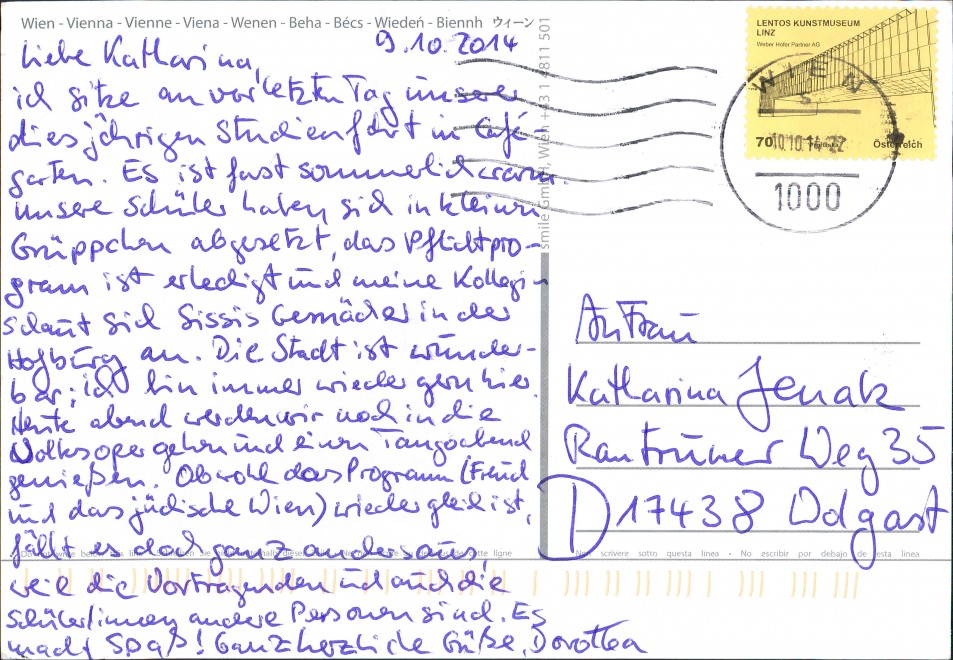 Wien - Vienna - Vienne - Viena - Wenen - Beha - Bécs - Wiedeń - Biennh ウィーン
9.10.2014
Liebe Katharina,
ich sitze am vorletzten Tag unserer
diesjährigen Studienfahrt im Café-
garten. Es ist fast sommerlich warm.
Unsere Schüler haben sich in kleinen
Grüppchen abgesetzt, das Pflichtpro-
gram ist erledigt und meine Kollegin
schaut sich Sissis Gemächer in der
Hofburg an. Die Stadt ist wunder-
bar; ich bin immer wieder gern hier.
Heute abend werden wir noch in die
Volksoper gehen und einen Tangoabend
genießen. Obwohl das Programm (Freud
und das jüdische Wien) wieder gleich ist,
fällt es doch ganz anders aus,
weil die Vortragenden und auch die
Schüler/innen andere Personen sind. Es
macht Spaß! Ganz herzliche Grüße, Dorothea
smile GmbH, Wien 4811 501
LENTOS KUNSTMUSEUM
LINZ
Weber Hofer Partner AG
70
Österreich
WIEN
10.10.14-22
1000
An Frau
Katharina Jenak
Weg 35
D 17438 Wolgast
cette ligne
scrivere sotto questa linea - No escribir por debajo de esta linea